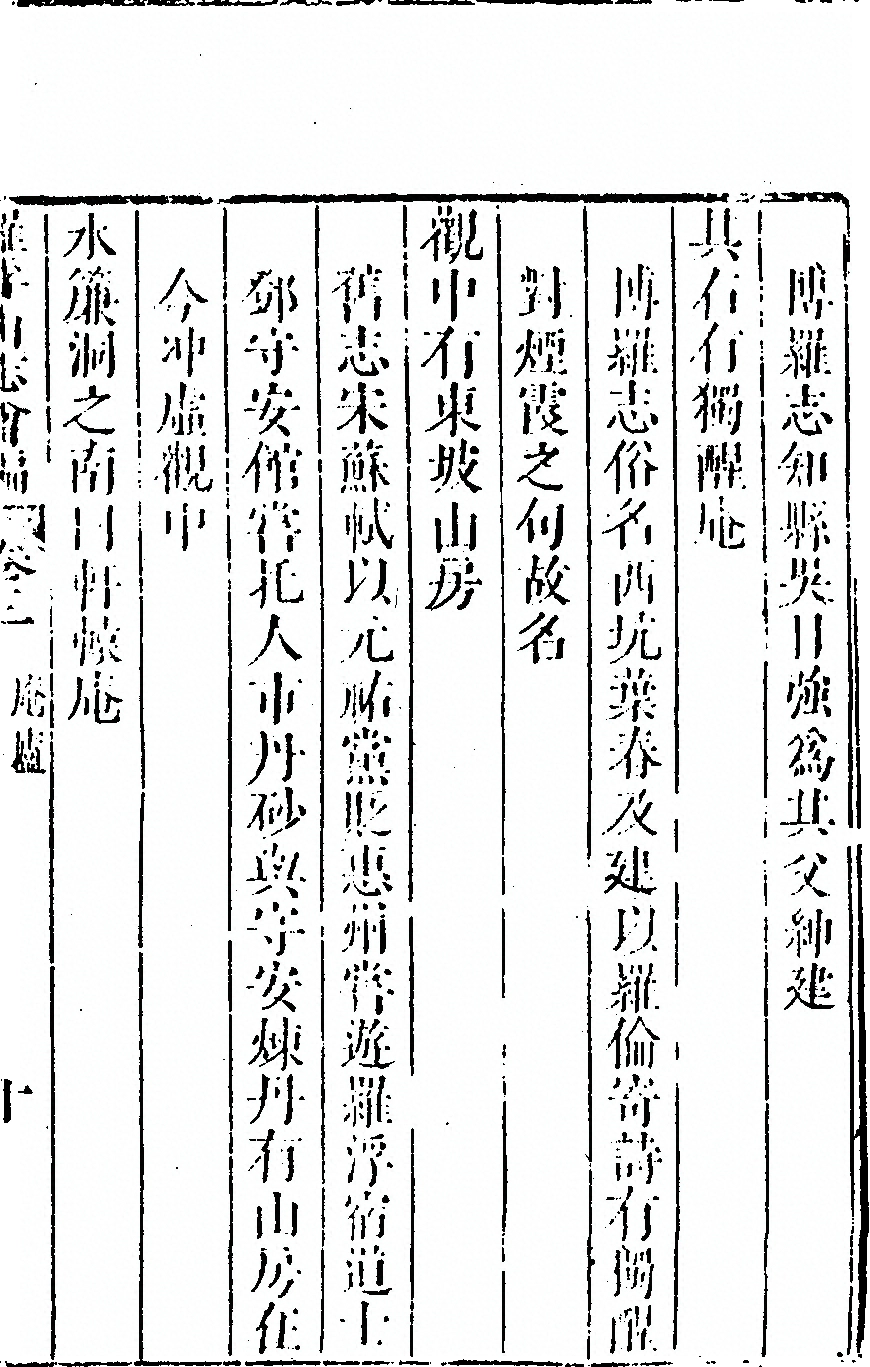 博羅志知縣吳日強爲其父紳建
其石有獨醒庵
博羅志俗名西坑葉春及建以羅倫寄詩有獨醒
對煙霞之句故名
觀中有東坡山房
舊志宋蘇軾以元祐黨貶惠州嘗遊羅浮宿道士
鄧守安館嘗托人市丹砂與守安煉丹有山房在
今冲虛觀中
水簾洞之南曰軒轅庵
羅浮山志會編 卷三 庵廬 十